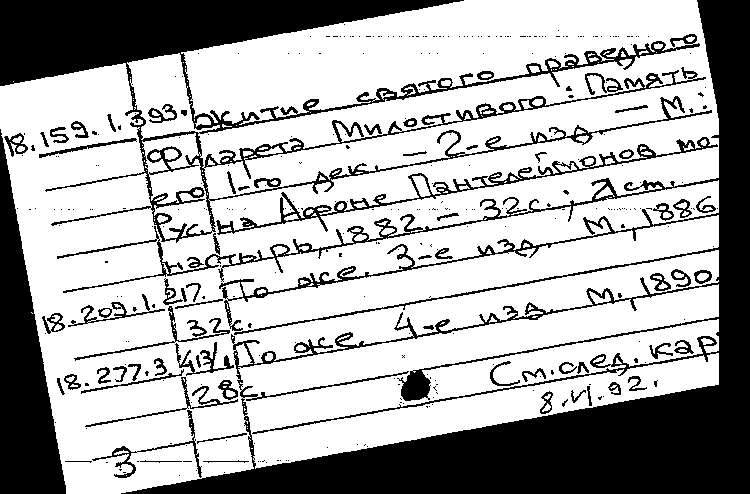 18.159.1.393. Житие святого праведного
Филарета Милостивого: Память
его 1-го дек. - 2-е изд. - М.:
Рус. на Афоне Пантелеймонов мо-
настырь, 1882. - 32с.;
18.209.1.217. То же. 3-е изд. М., 1886.
32с.
18.277.3. То же. 4-е изд. М., 1890.
28с.
См. след. кар
8.VI.92.
3